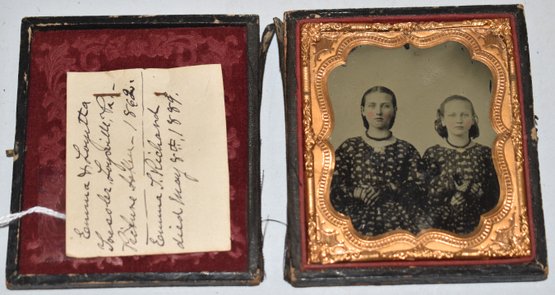 Emma & Loretta
Loysville, Pa.
Picture taken 1862.
Emma T. Richard
died May 8th, 1889.